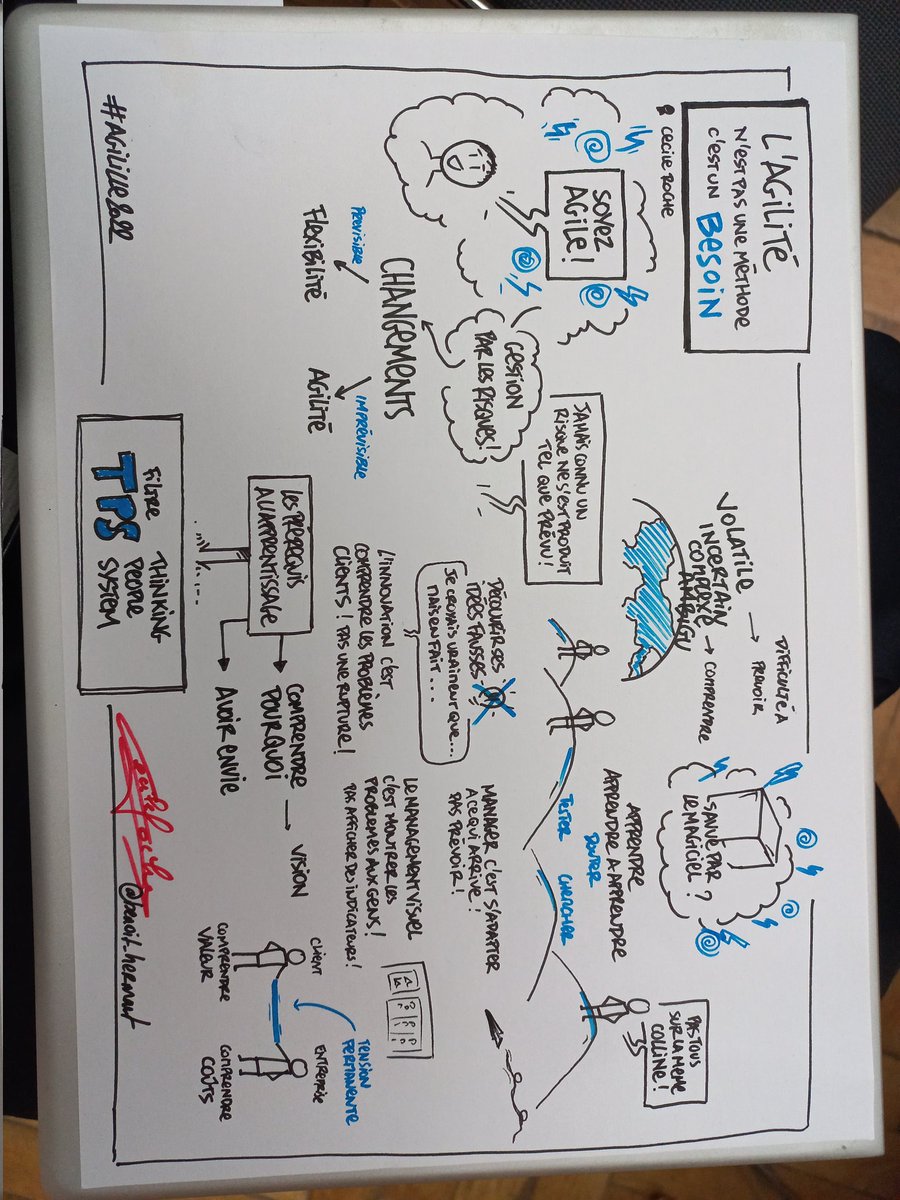 L'AGILITÉ
N'EST PAS UNE MÉTHODE
C'EST UN BESOIN
CECILE ROCHE
SOYEZ
AGILE !
GESTION
PAR LES RISQUES !
CHANGEMENTS
PRÉVISIBLE
FLEXIBILITÉ
IMPRÉVISIBLE
AGILITÉ
JAMAIS CONNU UN
RISQUE NE S'EST PRODUIT
TEL QUE PRÉVU !
VOLATILE
INCERTAIN
COMPLEXE
AMBIGU
DIFFICULTÉ À
PREVOIR
COMPRENDRE
SAUVÉ PAR
LE MAGICIEL ?
PAS TOUS
SUR LA MÊME
COLLINE !
APPRENDRE
APPRENDRE A APPRENDRE
DOUTER
TESTER CHERCHER
DÉCOUVRIR SES
IDÉES FAUSSES
JE CROYAIS VRAIMENT QUE...
MAIS EN FAIT....
MANAGER C'EST S'ADAPTER
A CE QUI ARRIVE !
PAS PRÉVOIR !
L'INNOVATION C'EST
COMPRENDRE LES PROBLÈMES
CLIENTS ! PAS UNE RUPTURE !
LE MANAGEMENT VISUEL
C'EST MONTRER LES
PROBLEMES AUX GENS !
PAS AFFICHER DE INDICATEURS !
LES PRÉREQUIS
A L'APPRENTISSAGE
COMPRENDRE
POURQUOI
VISION
AVOIR ENVIE
TENSION
PERMANENTE
CLIENT
ENTREPRISE
COMPRENDRE
VALEUR
COMPRENDRE
COÛTS
FILTRE
TPS
THINKING
PEOPLE
SYSTEM